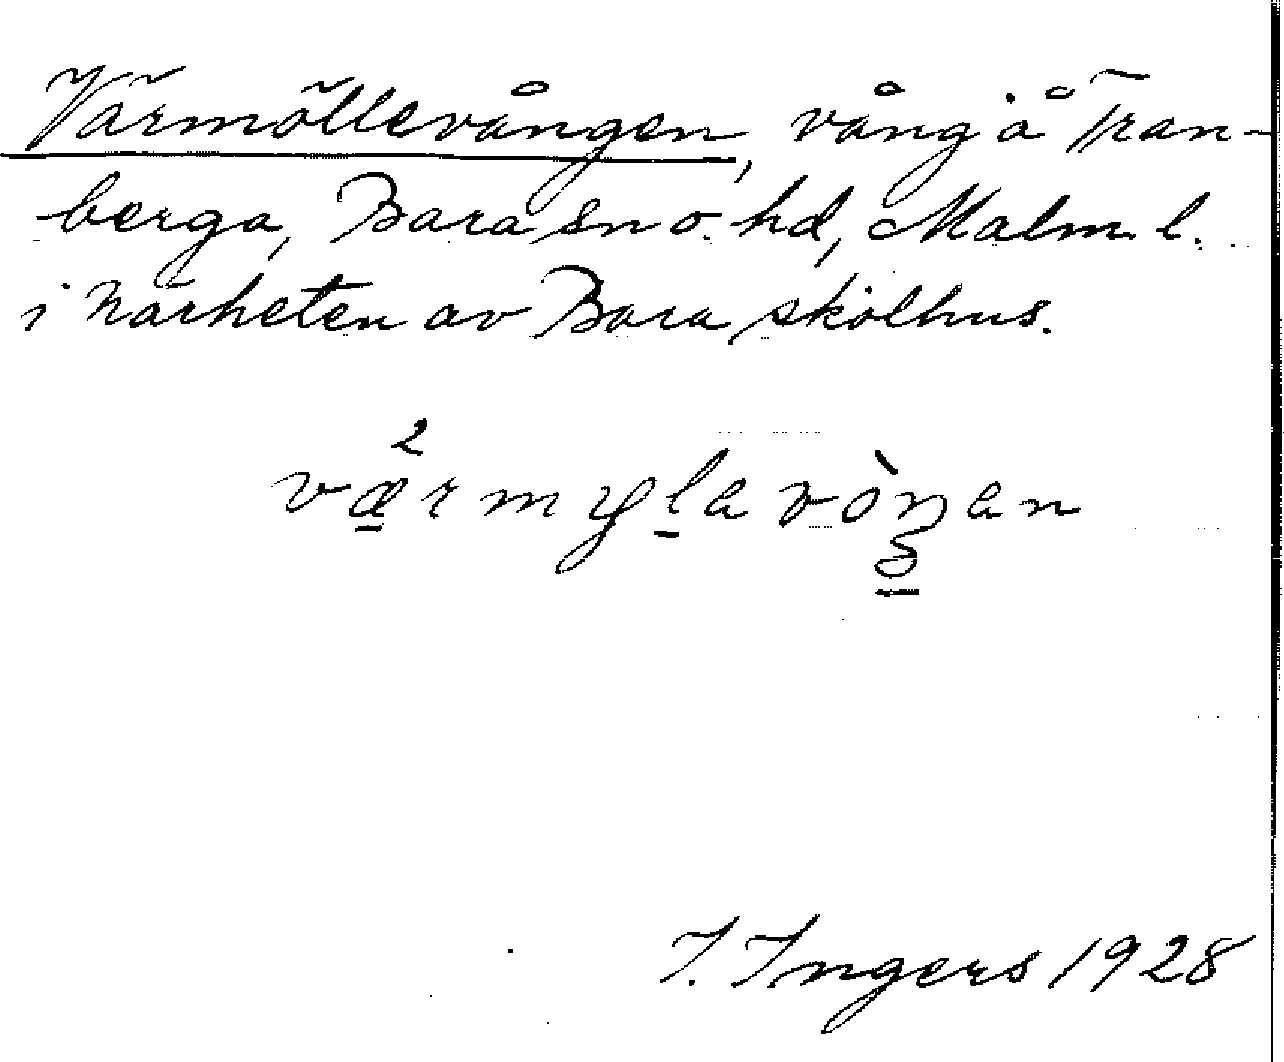 Värmöllevången, vång å Tran-
berga, Bara sn o. hd, Malm. l.
i närheten av Bara skolhus.
I. Ingers 1928